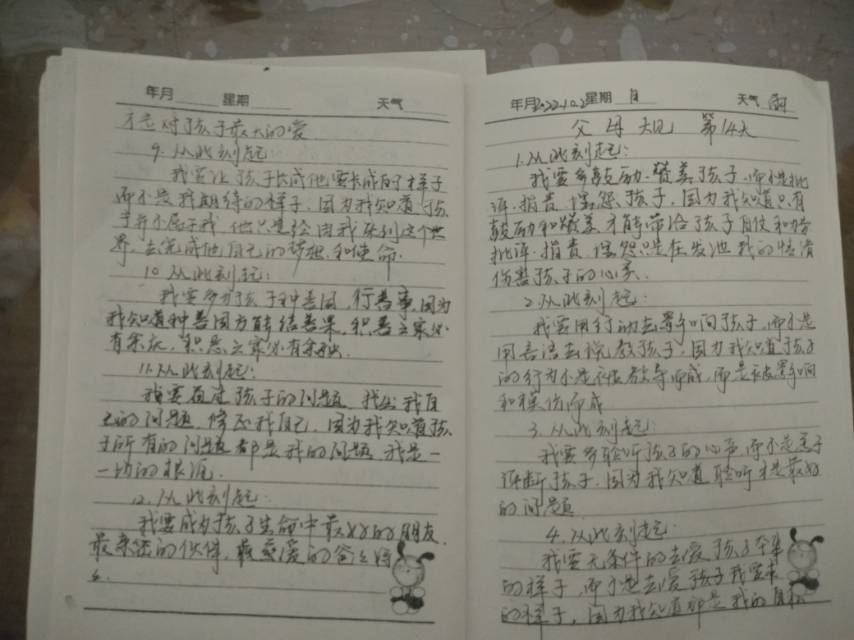 年月 星期 天气
才是对孩子最大的爱
9.从此刻起:
我要让孩子长成他要长成的样子
而不是我期待的样子,因为我知道孩
子并不属于我,他只是经由我来到这个世
界,去完成他自己的梦想和使命.
10.从此刻起:
我要多为孩子种善因,行善事,因为
我知道种善因方能结善果,积善之家必
有余庆,积恶之家必有余殃.
11.从此刻起:
我要通过孩子的问题,找出我自
己的问题,修正我自己,因为我知道孩
子所有的问题都是我的问题,我是一
一切的根源.
12.从此刻起:
我要成为孩子生命中最好的朋友,
最亲密的伙伴,最亲爱的爸爸妈
年月2022.10.2星期日 天气 雨
父母规 第14天
1.从此刻起:
我要多鼓励.赞美孩子,而不是批
评.指责.埋怨孩子,因为我知道只有
鼓励和赞美才能带给孩子自信和力量
批评.指责.埋怨只是在发泄我的情绪
伤害孩子的心灵.
2.从此刻起:
我要用行动去影响孩子,而不是
用言语去说教孩子,因为我知道孩子
的行为不是被教导而成,而是被影响
和模仿而成
3.从此刻起:
我要多聆听孩子的心声,而不是急于
评断孩子.因为我知道聆听才是最好
的问题
4.从此刻起:
我要无条件的去爱孩子本来
的样子,而不是去爱孩子我要求
的样子,因为我知道那是我的自私